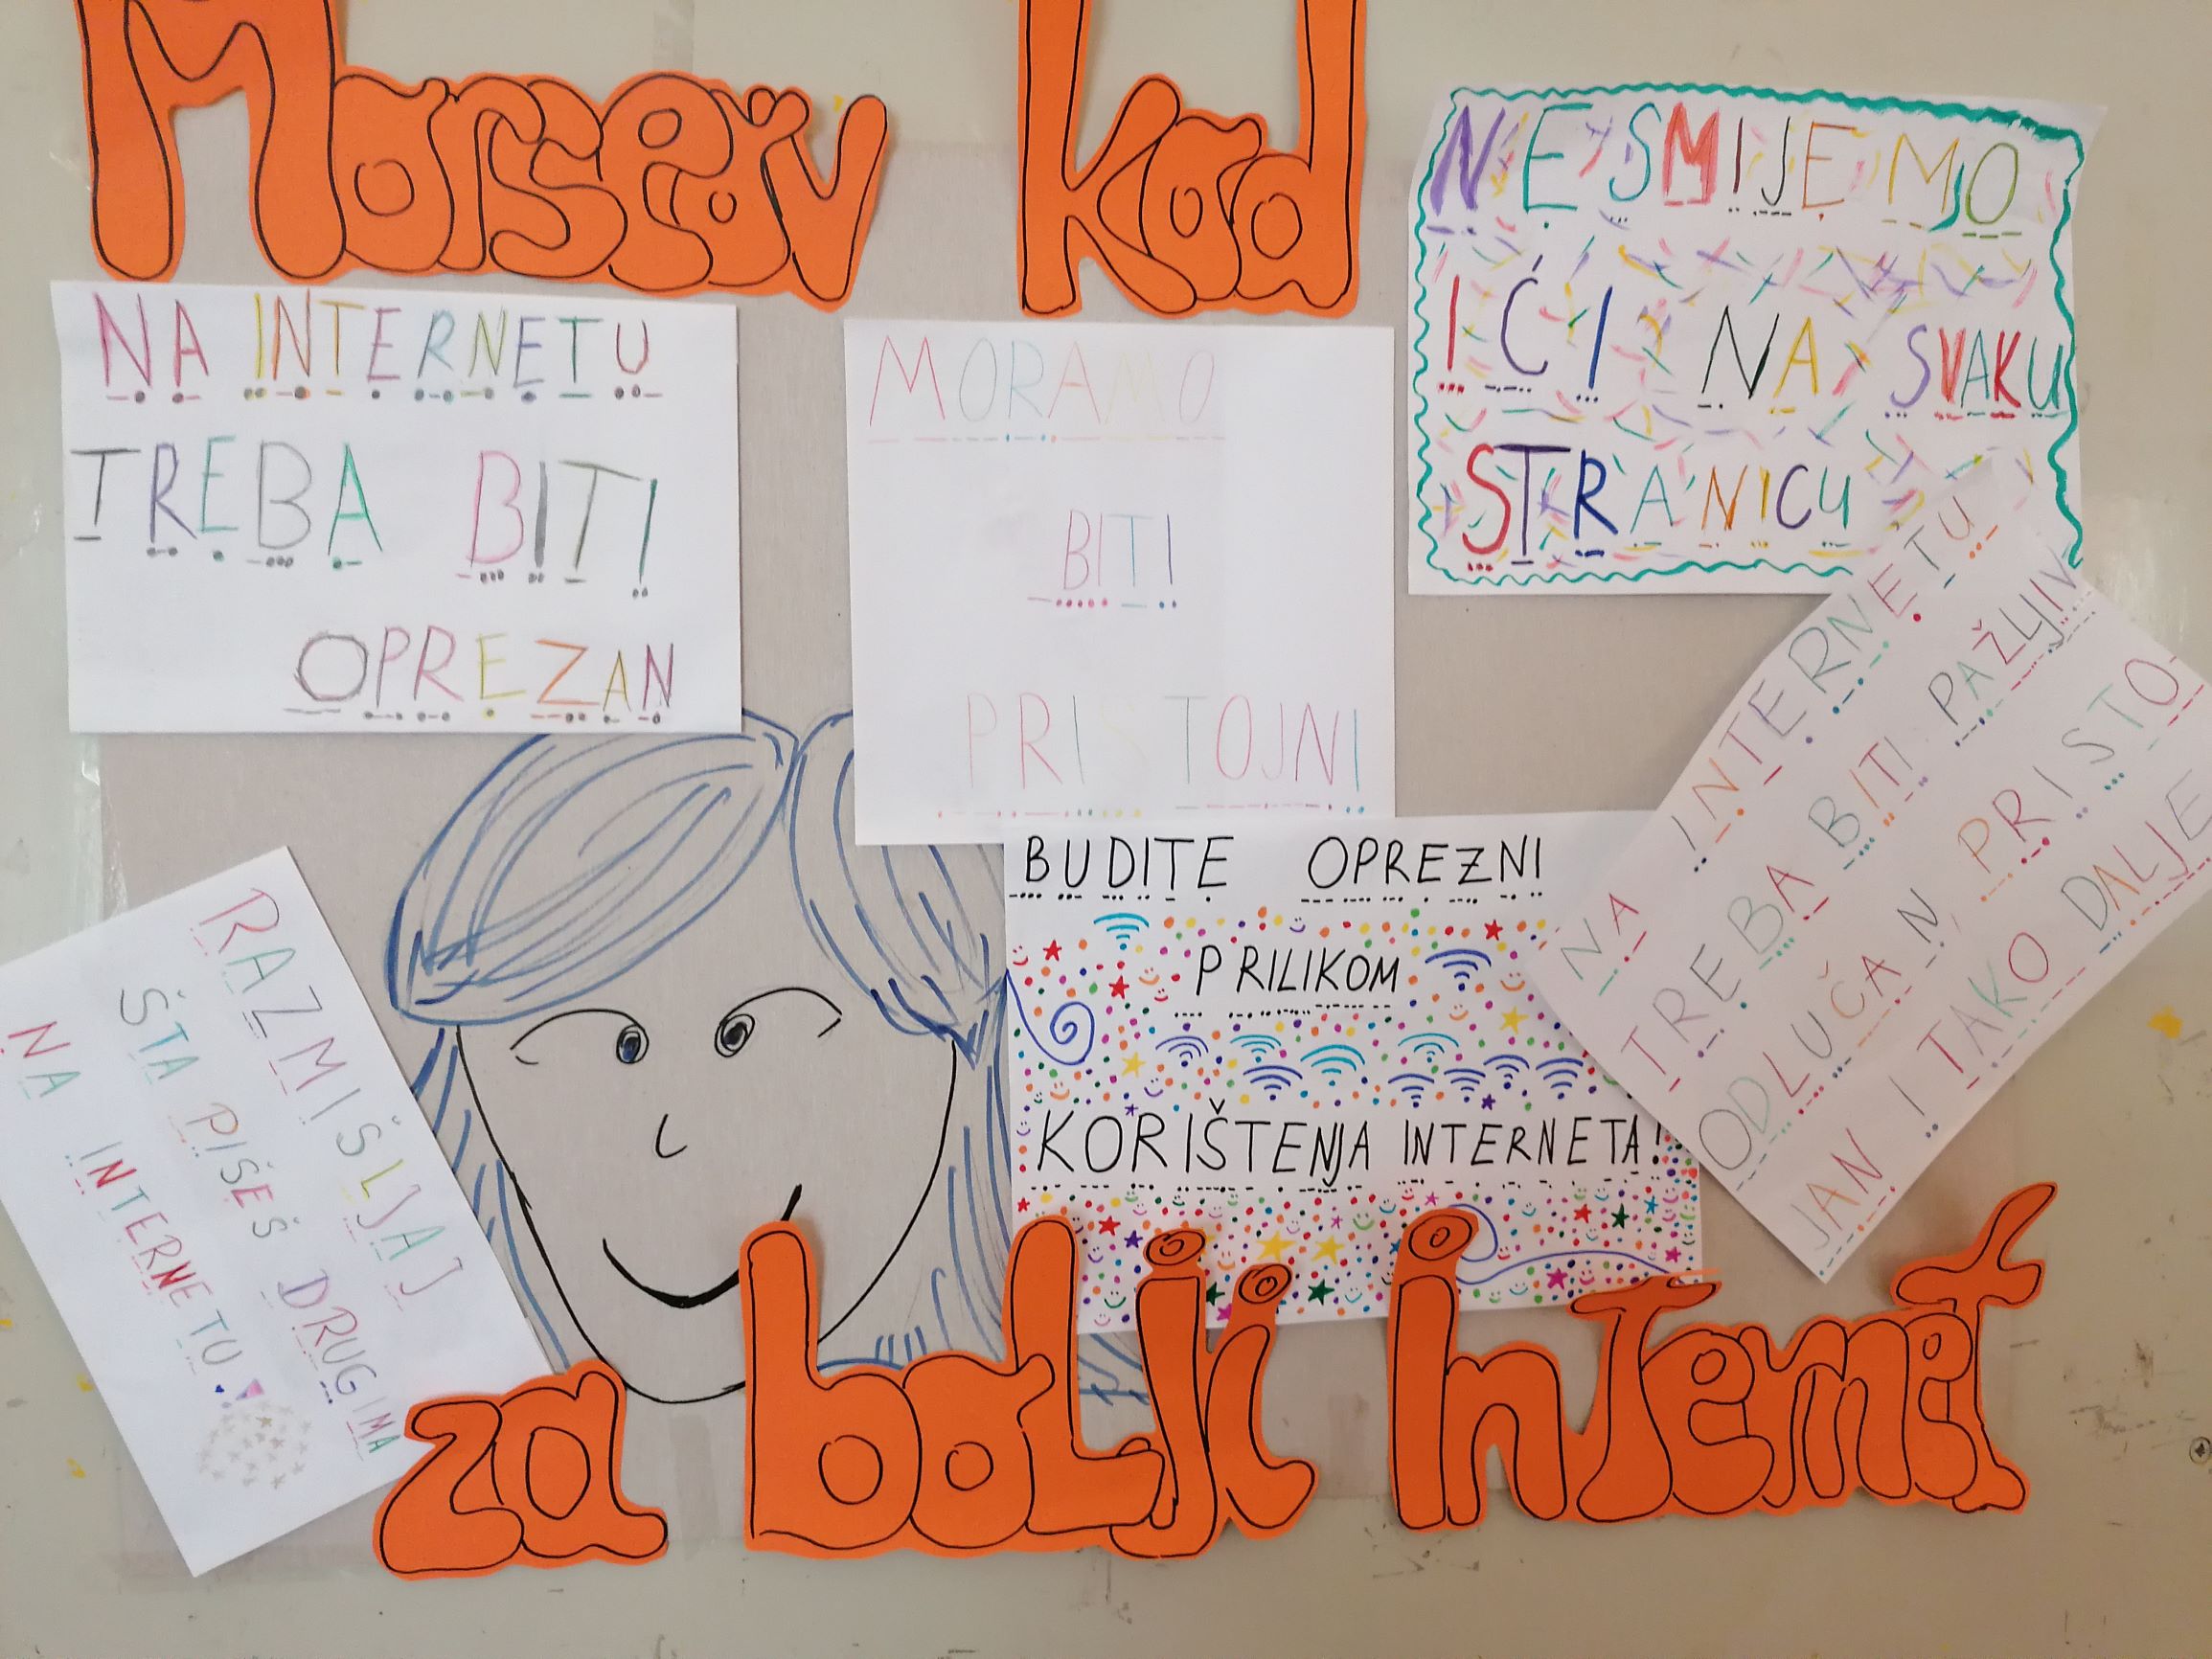 Morseov kod
NA INTERNETU
TREBA BITI
OPREZAN
MORAMO
BITI
PRISTOJNI
NE SMIJEMO
IĆI NA SVAKU
STRANICU
RAZMIŠLJAJ
ŠTA PIŠEŠ DRUGIMA
NA INTERNETU!
BUDITE OPREZNI
PRILIKOM
KORIŠTENJA INTERNETA!
NA INTERNETU
TREBA BITI PAŽLJIV
ODLUČAN PRISTO
JAN I TAKO DALJE
za bolji internet